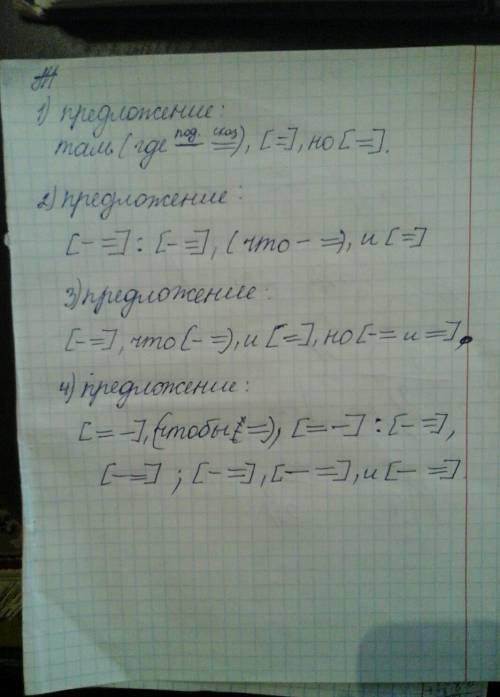 1) предложение:
там (где под. — сказ. =), [-=], но [-=].
2) предложение:
[- =] : [- =], (что - =), и [=]
3) предложение:
[-=], что (- =), и [-=], но [-= и =].
4) предложение:
[= -], (чтобы =), [= -] : [- =],
[-=] ; [- =], [- =], и [- =].